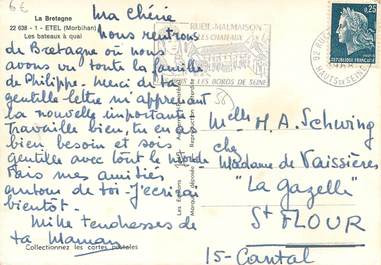 6€
La Bretagne
22 638 - 1 - ETEL (Morbihan)
Les bateaux à quai
Ma Chérie
Nous rentrons
de Bretagne où nous
avons vu toute la famille
de Philippe. Merci de ta
gentille lettre m'apprenant
la nouvelle importante.
Travaille bien, tu en as
bien besoin et sois
gentille avec tout le monde
Fais mes amitiés
autour de toi. J'ecrirai
bientôt.
Mille tendresses de
ta Maman
Collectionnez les cartes postales
Les Editions
Marque déposée
RUEIL-MALMAISON
LES BORDS DE SEINE
0,25
HAUTS-DE-SEINE
Melle M. A. Schwing
che
Madame de Vaissières
"La Gazelle"
St FLOUR
15-Cantal